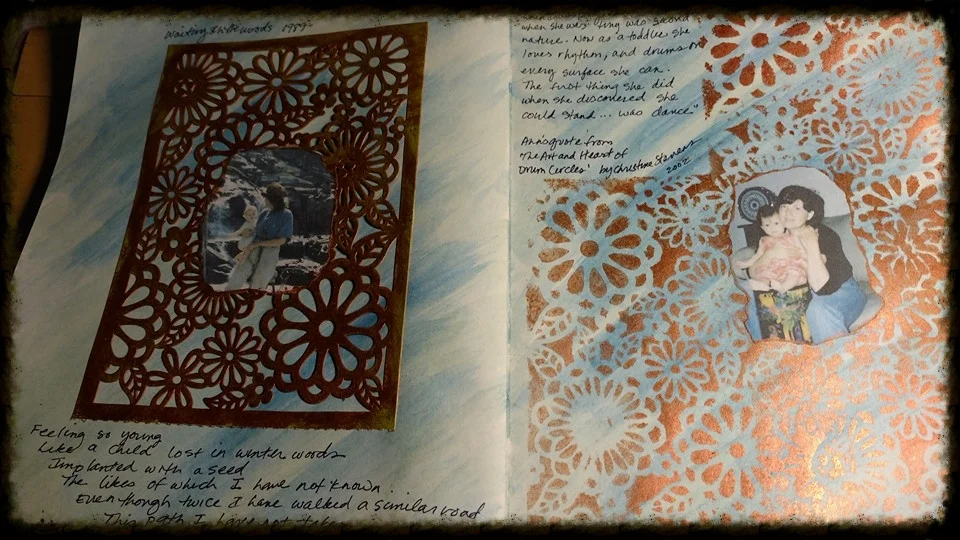 Waiting winter woods 1989
Feeling so young
Like a child lost in winter woods
Implanted with a seed
The likes of which I have not known...
Even though twice I have walked a similar road
This path I have not
when she was was second
nature. Now as a toddler she
loves rhythm, and drums on
every surface she can.
The first thing she did
when she discovered she
could stand... was dance."
Ann's quote from
The Art and Heart of
Drum Circles" by Christine Stevens
2002